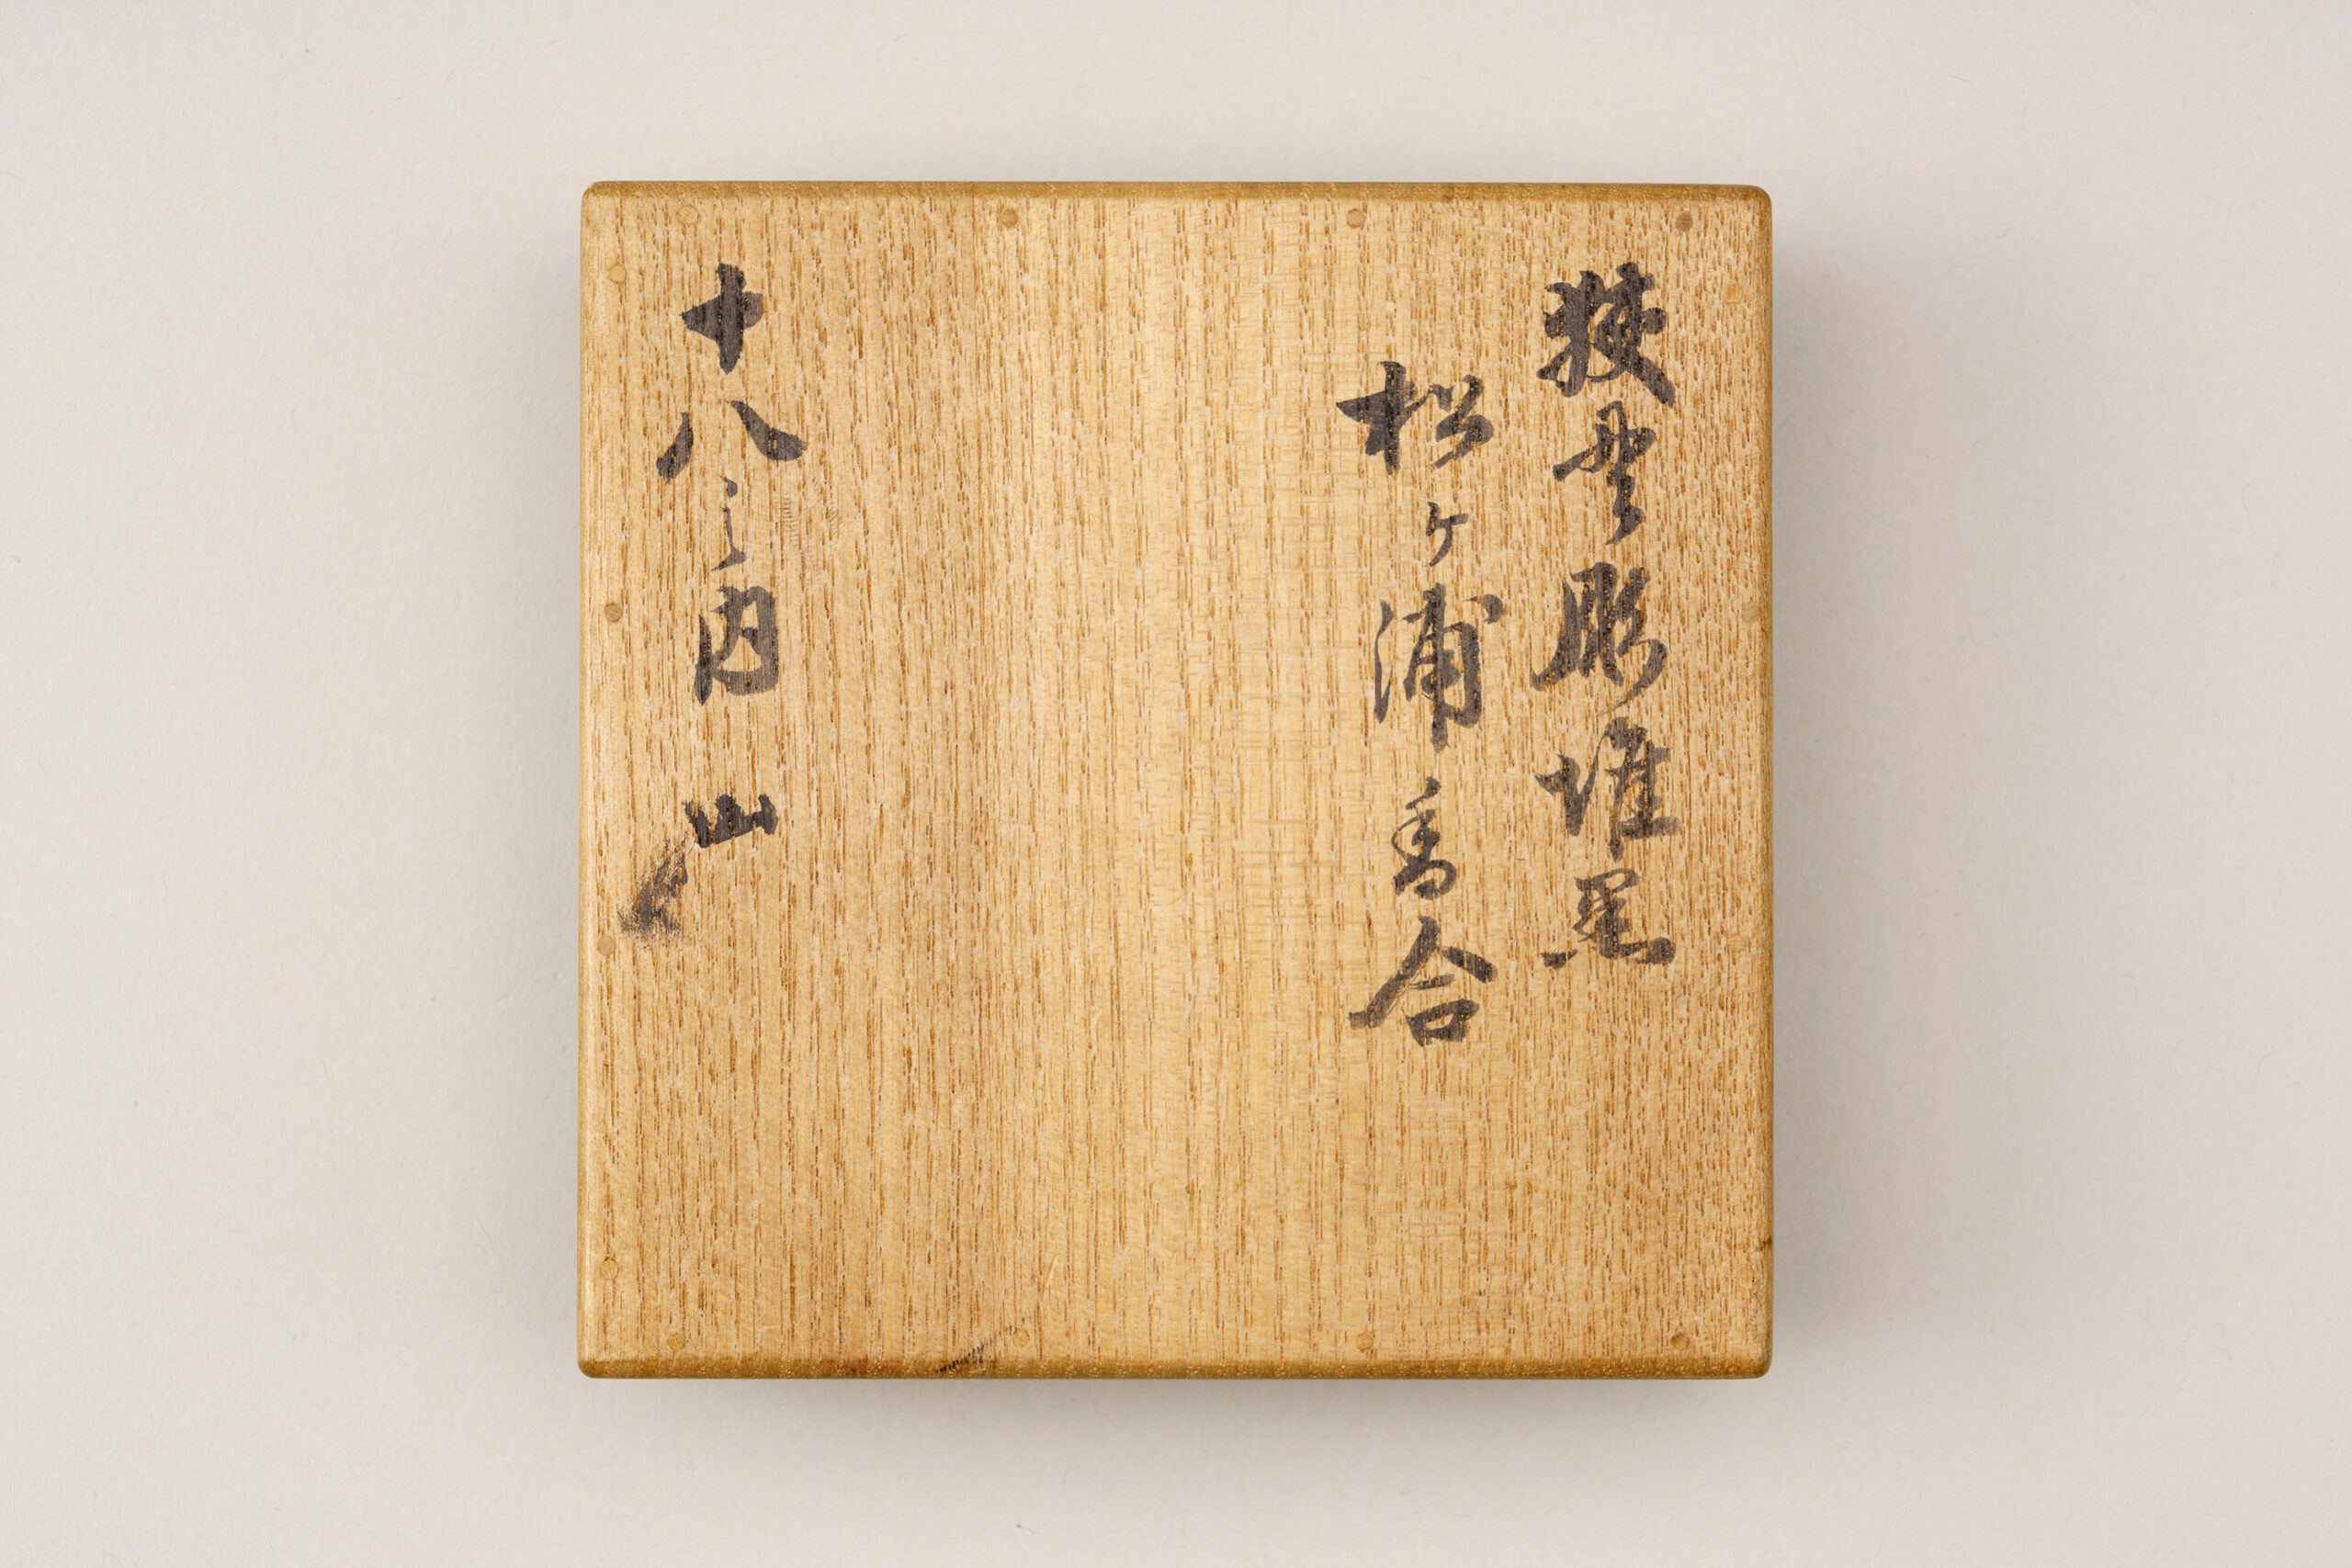 狭貫彫堆黒
松ヶ浦香合
十八之内 山